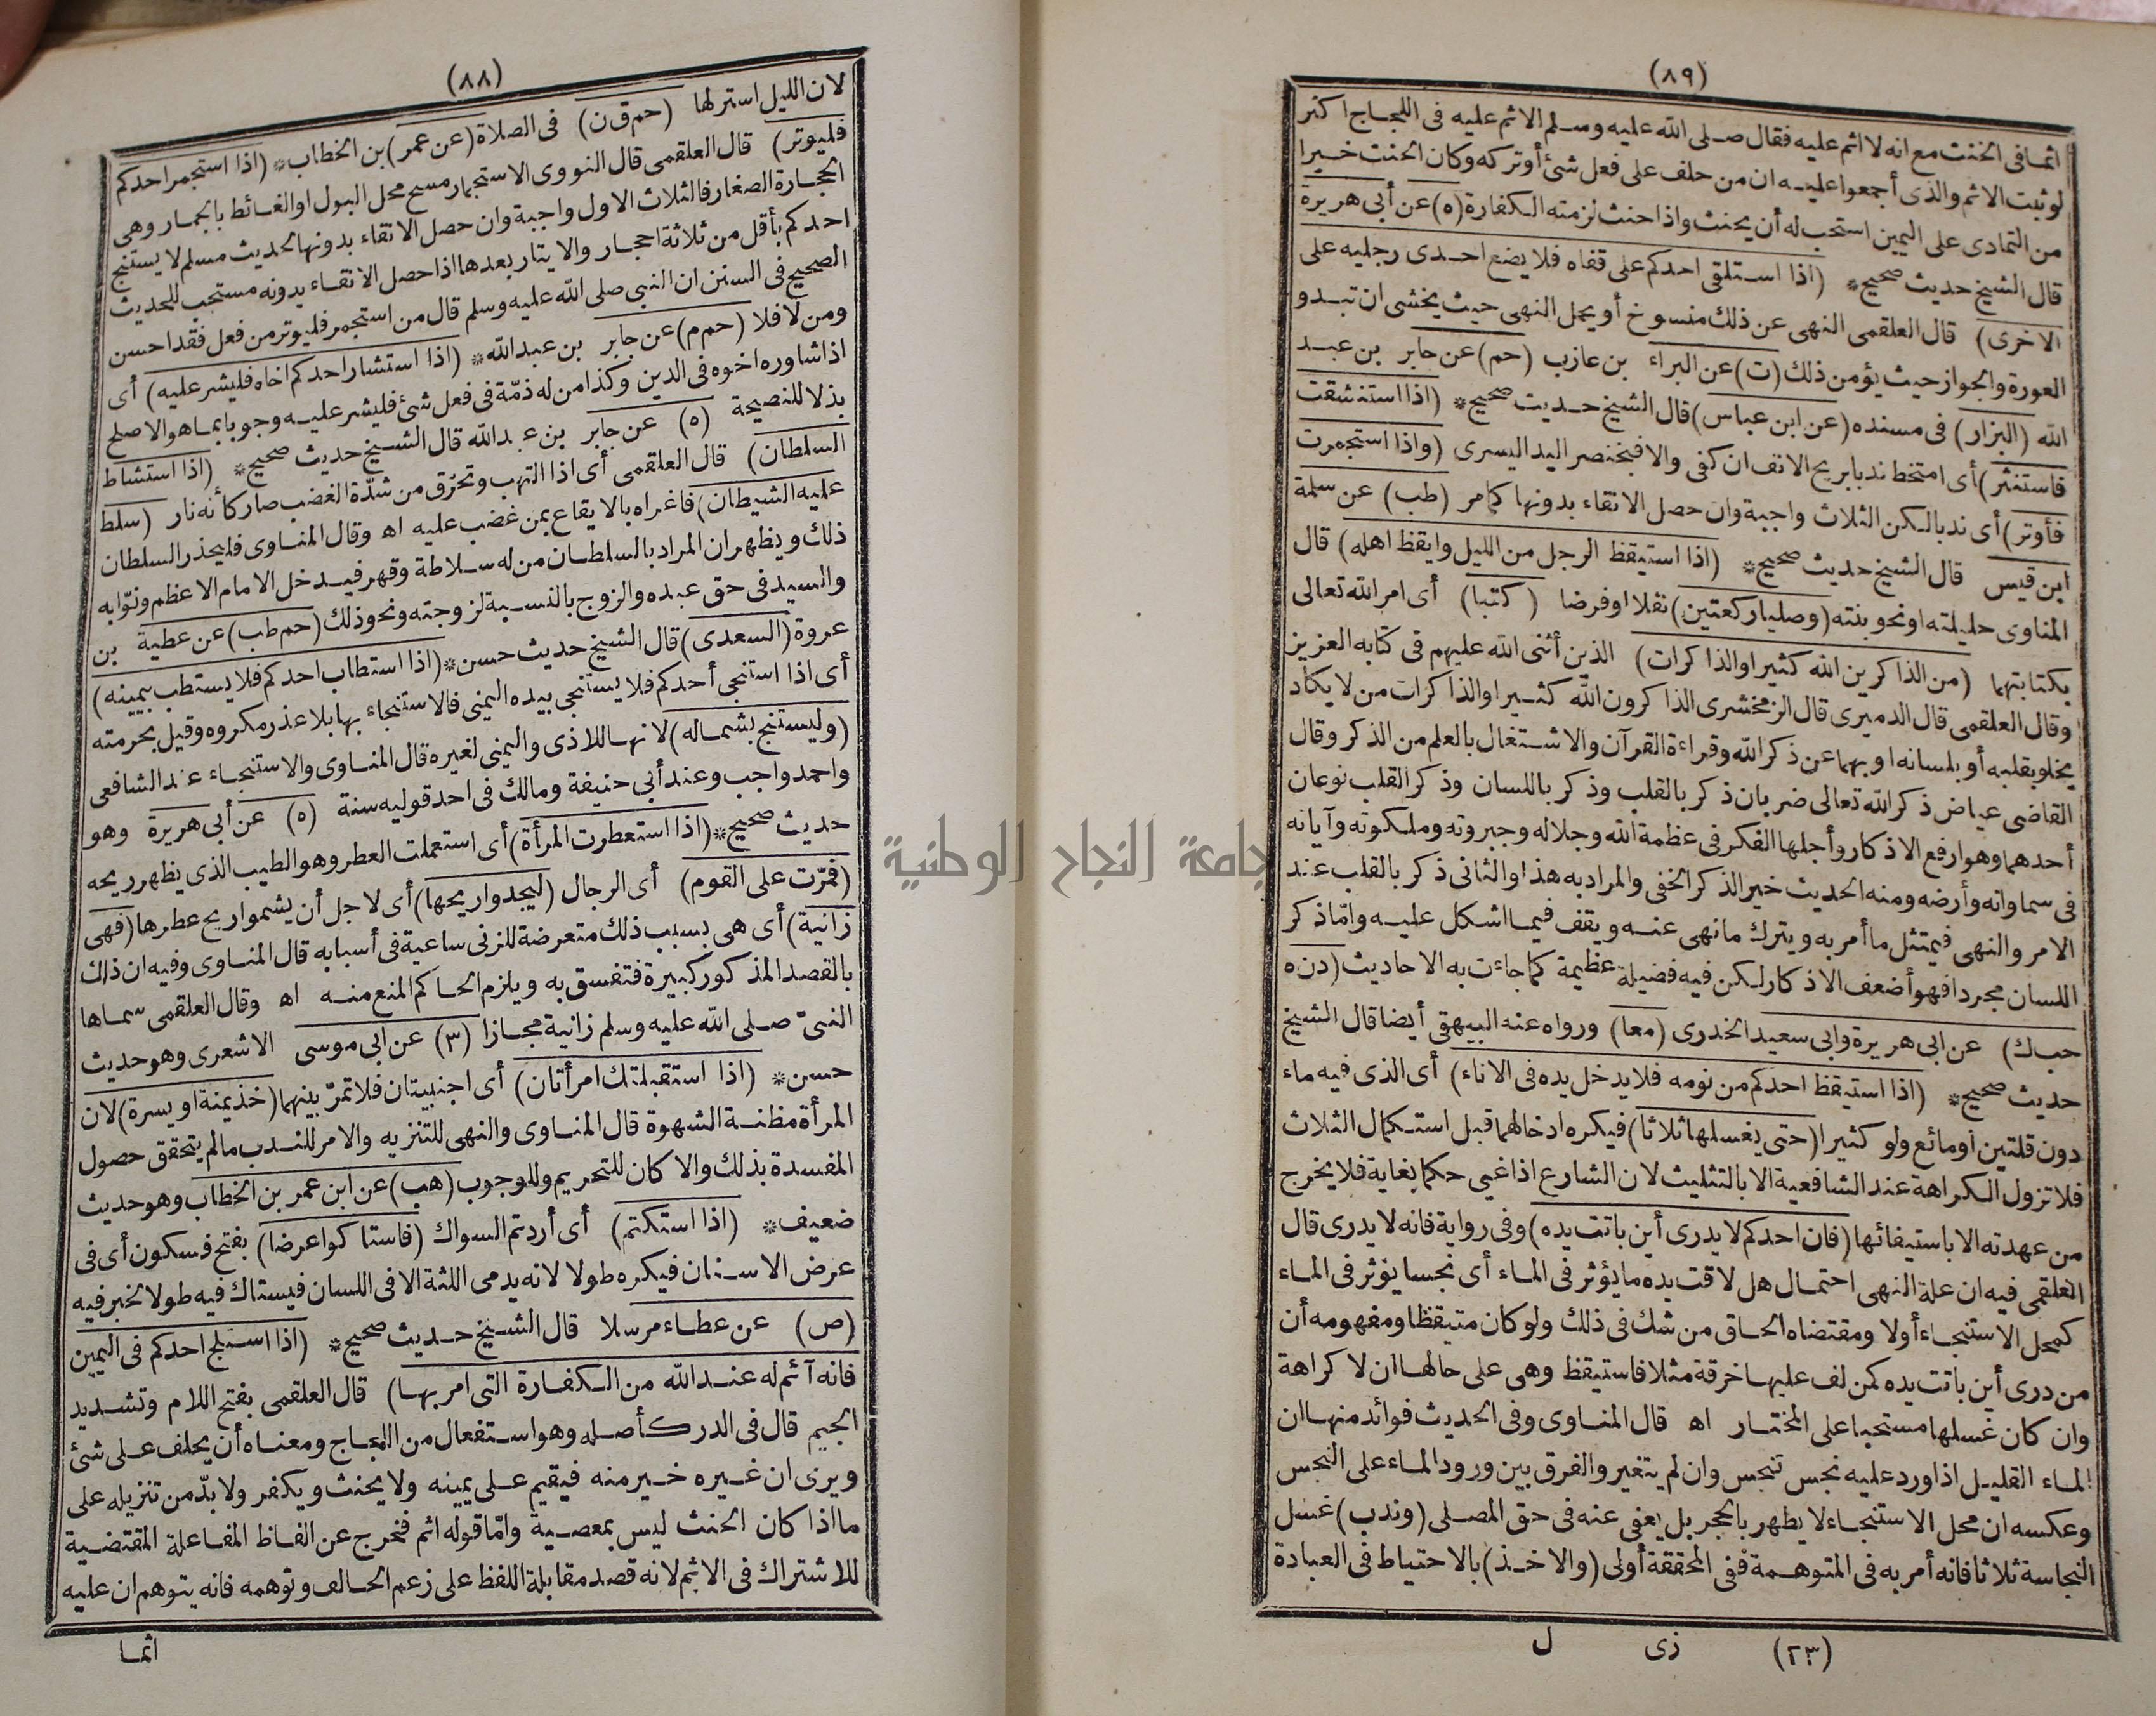 (٨٨)
لان الليل استر لها (حم ق ن) فى الصلاة (عن عمر) بن الخطاب * (اذا استجمر احدكم
فليوتر) قال العلقمى قال النووى الاستجمار مسح محل البول او الغائط بالجمار وهى
الحجارة الصغار فالثلاث الاول واجبة وان حصل الانقاء بدونها لحديث مسلم لا يستنج
احدكم بأقل من ثلاثة احجار والايتار بعدها اذا حصل الانقاء بدونه مستحب للحديث
الصحيح فى السنن ان النبى صلى الله عليه وسلم قال من استجمر فليوتر من فعل فقد احسن
ومن لا فلا (حم م) عن جابر بن عبد الله * (اذا استشار احدكم اخاه فليشر عليه) أى
اذا شاوره اخوه فى الدين وكذا من له ذمّة فى فعل شئ فليشر عليه وجوبا بما هو الاصلح
بذلا للنصيحة (ه) عن جابر بن عبد الله قال الشيخ حديث صحيح * (اذا استشاط
السلطان) قال العلقمى أى اذا التهب وتحرّق من شدّة الغضب صار كأنه نار (سلط
عليه الشيطان) فاغراه بالايقاع بمن غضب عليه اه وقال المناوى فليحذر السلطان
ذلك ويظهر ان المراد بالسلطان من له سلاطة وقهر فيدخل الامام الاعظم ونوّابه
والسيد فى حق عبده والزوج بالنسبة لزوجته ونحو ذلك (حم طب) عن عطية بن
عروة (السعدى) قال الشيخ حديث حسن * (اذا استطاب احدكم فلا يستطب بيمينه)
أى اذا استنجى أحدكم فلا يستنجى بيده اليمنى فالاستنجاء بها بلا عذر مكروه وقيل بحرمته
(وليستنج بشماله) لانها للاذى واليمنى لغيره قال المناوى والاستنجاء عند الشافعى
واحمد واجب وعند أبى حنيفة ومالك فى احد قوليه سنة (ه) عن أبى هريرة وهو
حديث صحيح * (اذا استعطرت المرأة) أى استعملت العطر وهو الطيب الذى يظهر ريحه
(فمرّت على القوم) أى الرجال (ليجدوا ريحها) أى لاجل أن يشموا ريح عطرها (فهى
زانية) أى هى بسبب ذلك متعرضة للزنى ساعية فى أسبابه قال المناوى وفيه ان ذلك
بالقصد المذكور كبيرة فتفسق به ويلزم الحاكم المنع منه اه وقال العلقمى سماها
النبىّ صلى الله عليه وسلم زانية مجازا (٣) عن ابى موسى الاشعرى وهو حديث
حسن * (اذا استقبلتك امرأتان) أى اجنبيتان فلا تمرّ بينهما (خذ يمنة او يسرة) لان
المرأة مظنة الشهوة قال المناوى والنهى للتنزيه والامر للندب ما لم يتحقق حصول
المفسدة بذلك والا كان للتحريم وللوجوب (هب) عن ابن عمر بن الخطاب وهو حديث
ضعيف * (اذا استكتم) أى أردتم السواك (فاستاكوا عرضا) بفتح فسكون أى فى
عرض الاسنان فيكره طولا لانه يدمى اللثة الا فى اللسان فيستاك فيه طولا لخبر فيه
(ص) عن عطاء مرسلا قال الشيخ حديث صحيح * (اذا استلج احدكم فى اليمين
فانه آثم له عند الله من الكفارة التى امر بها) قال العلقمى بفتح اللام وتشديد
الجيم قال فى الدرر كأصله وهو استفعال من اللجاج ومعناه أن يحلف على شئ
ويرى ان غيره خير منه فيقيم على يمينه ولا يحنث ويكفر ولا بدّ من تنزيله على
ما اذا كان الحنث ليس بمعصية وامّا قوله اثم فخرج عن الفاظ المفاعلة المقتضية
للاشتراك فى الاثم لانه قصد مقابلة اللفظ على زعم الحالف وتوهمه فانه يتوهم ان عليه
اثما
(٨٩)
اثما فى الحنث مع انه لا اثم عليه فقال صلى الله عليه وسلم الاثم عليه فى اللجاج اكثر
لو ثبت الاثم والذى أجمعوا عليه ان من حلف على فعل شئ أو تركه وكان الحنث خيرا
من التمادى على اليمين استحب له أن يحنث واذا حنث لزمته الكفارة (ه) عن أبى هريرة
قال الشيخ حديث صحيح * (اذا استلقى احدكم على قفاه فلا يضع احدى رجليه على
الاخرى) قال العلقمى النهى عن ذلك منسوخ أو يحمل النهى حيث يخشى ان تبدو
العورة والجواز حيث يؤمن ذلك (ت) عن البراء بن عازب (حم) عن جابر بن عبد
الله (البزار) فى مسنده (عن ابن عباس) قال الشيخ حديث صحيح * (اذا استنشقت
فاستنثر) أى امتخط ندبا بريح الانف ان كفى والا فبخنصر اليد اليسرى (واذا استجمرت
فأوتر) أى ندبا لكن الثلاث واجبة وان حصل الانقاء بدونها كما مر (طب) عن سلمة
ابن قيس قال الشيخ حديث صحيح * (اذا استيقظ الرجل من الليل وايقظ اهله) قال
المناوى حليلته او نحو بنته (وصليا ركعتين) نفلا او فرضا (كتبا) أى امر الله تعالى
بكتابتهما (من الذاكرين الله كثيرا والذاكرات) الذين أثنى الله عليهم فى كتابه العزيز
وقال العلقمى قال الدميرى قال الزمخشرى الذاكرون الله كثيرا والذاكرات من لا يكاد
يخلو بقلبه أو بلسانه او بهما عن ذكر الله وقراءة القرآن والاشتغال بالعلم من الذكر وقال
القاضى عياض ذكر الله تعالى ضربان ذكر بالقلب وذكر باللسان وذكر القلب نوعان
أحدهما وهو ارفع الاذكار وأجلها الفكر فى عظمة الله وجلاله وجبروته وملكوته وآياته
فى سماواته وأرضه ومنه الحديث خير الذكر الخفى والمراد به هذا والثانى ذكر بالقلب عند
الامر والنهى فيمتثل ما أمر به ويترك ما نهى عنه ويقف فيما اشكل عليه وامّا ذكر
اللسان مجردا فهو أضعف الاذكار لكن فيه فضيلة عظيمة كما جاءت به الاحاديث (د ن ه
حب ك) عن ابى هريرة وابى سعيد الخدرى (معا) ورواه عنه البيهقى أيضا قال الشيخ
حديث صحيح * (اذا استيقظ احدكم من نومه فلا يدخل يده فى الاناء) أى الذى فيه ماء
دون قلتين أو مائع ولو كثيرا (حتى يغسلها ثلاثا) فيكره ادخالهما قبل استكمال الثلاث
فلا تزول الكراهة عند الشافعية الا بالتثليث لان الشارع اذا غيى حكما بغاية فلا يخرج
من عهدته الا باستيفائها (فان احدكم لا يدرى أين باتت يده) وفى رواية فانه لا يدرى قال
العلقمى فيه ان علة النهى احتمال هل لاقت يده ما يؤثر فى الماء أى نجسا يؤثر فى الماء
كمحل الاستنجاء أولا ومقتضاه الحاق من شك فى ذلك ولو كان متيقظا ومفهومه أن
من درى أين باتت يده كمن لف عليها خرقة مثلا فاستيقظ وهى على حالها ان لا كراهة
وان كان غسلها مستحبا على المختار اه قال المناوى وفى الحديث فوائد منها ان
الماء القليل اذا ورد عليه نجس تنجس وان لم يتغير والفرق بين ورود الماء على النجس
وعكسه ان محل الاستنجاء لا يطهر بالحجر بل يعفى عنه فى حق المصلى (وندب) غسل
النجاسة ثلاثا فانه أمر به فى المتوهمة ففى المحققة أولى (والاخذ) بالاحتياط فى العبادة
(٢٣) زى ل
جامعة النجاح الوطنية